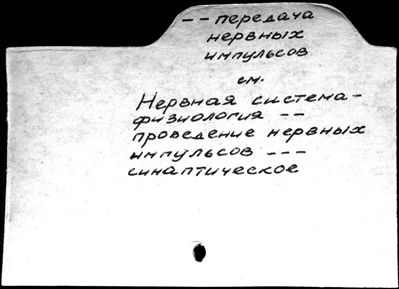 -- передача
нервных
импульсов
см.
Нервная система-
физиология --
проведение нервных
импульсов ---
синаптическое